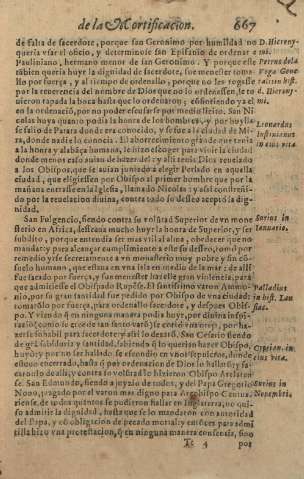 de la Mortificacion. 667
de falta de sacerdote, porque san Geronimo por humildad no
queria vsar el oficio, y determinose san Epifanio de ordenar a
Pauliniano, hermano menor de san Geronimo. Y porque este
tãbien queria huyr la dignidad de sacerdote, fue menester tomar
llo por fuerça, y al tiempo de ordenallo, porque no les rogasse
por la reuerencia del nombre de Dios que no lo ordenassen, le tu
uieron tapada la boca hasta que lo ordenaron;
en la ordenaciõ, por no poder por medio. San Ni
colas huya quanto podia la honra de los hombres, y por huylla
se salio de Patara donde era conocido, y se fue a la ciudad de Mi
ra, donde nadie lo conocia. El aborrecimiento grande que tenia
a la honra y alabãça humana, le hizo escoger para viuir la ciudad
donde menos caso auian de hazer del: y assi tenia Dios reuelado
a los Obispos, que se auian juntado a elegir Perlado en aquella
ciudad, que eligiessen por Obispo al primer hombre que por la
mañana entrasse en la Iglesia, llamado Nicolas: y assi
do por la reuelacion diuina, contra todo su desseo aceptò la di
gnidad.
San Fulgencio, siendo contra su volũtad Superior de vn mone
sterio en Africa, desseaua mucho huyr la honra de Superior, y ser
subdito, porque entendia ser mas vtil al alma, obedecer que no
mandar: y para alcançar cumplimiento a este su desseo, tomò por
remedio yrse secretamente a vn monasterio muy pobre y sin cõ
suelo humano, que estaua en vna isla en medio de la mar: de alli
fue sacado por fuerça, y fue menester hazelle gran violencia, para
que admitiesse el Obispado Rupẽse. El santissimo varon Ammo
nio, por su gran santidad fue pedido por Obispo de vna ciudad:
tomarõlo por fuerça, para ordenallo sacerdote, y despues Obis
po. Y viendo q̃ en ninguna manera podia huyr, por diuina inspi
racion se cortò vna oreja, por ha
zerse inhabil para sacerdote: y assi lo dexarõ. San Cesario siendo
de grã sabiduria y santidad, sabiendo q̃ lo querian hazer Obispo,
huyò: y por no ser hallado se escondio en vnos sepulcros, donde
estuuo encerrado, hasta q̃ por ordenacion de Dios lo hallarõ: y sa
carõlo de alli, y contra su volũtad lo hizieron Obispo Arelaten
se. San Edmundo, siendo a juyzio de todos, y del Papa Gregorio
Nono, juzgado por el varon mas digno para Arçobispo Cantua
riense, de todos quantos se pudieron hallar en Inglaterra, no qui
so admitir la dignidad, hasta que se lo mandaron con autoridad
del Papa, y cõ obligacion de pecado mortal: y entõces para admi
tilla hizo vna protestacion, q̃ en ninguna manera consentia, sino
por
D. Hierony-
mi.
Petrus de la
Vega Gene
ral in hist.
d. Hierony-
mi.
Leonardus
Iustinianus
in eius vita.
Surius in
Ianuario.
Palladius
in hist. Lau
siac.
Cyprian. in
eius vita.
Surius in
Nouembri.